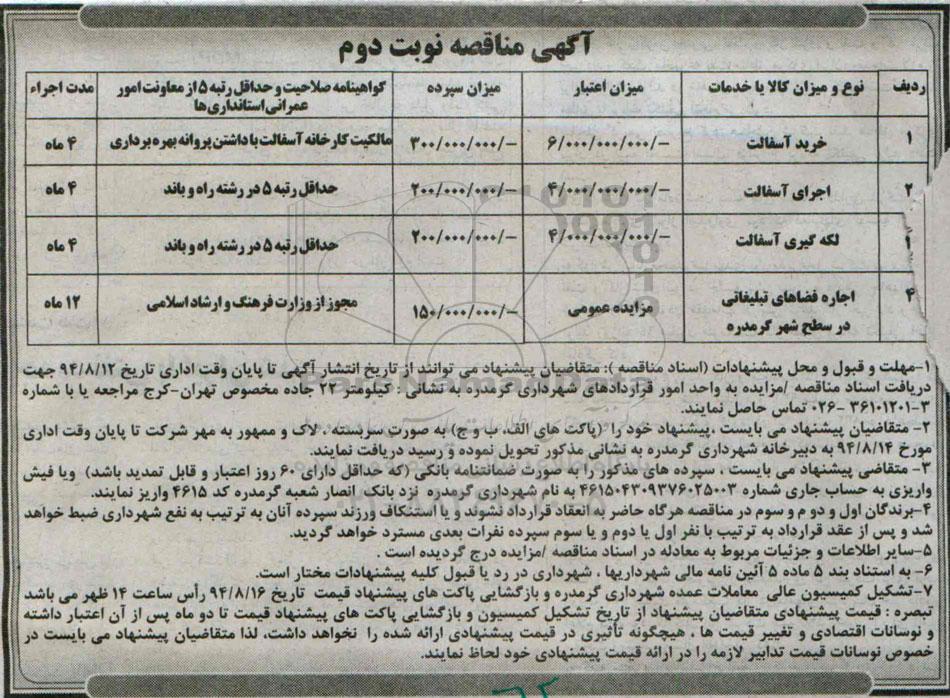 آگهی مناقصه نوبت دوم
ردیف نوع و میزان کالا یا خدمات میزان اعتبار میزان سپرده گواهینامه صلاحیت و حداقل رتبه ۵ از معاونت امور عمرانی استانداری ها مدت اجراء
۱ خرید آسفالت ۶/۰۰۰/۰۰۰/۰۰۰/- ۳۰۰/۰۰۰/۰۰۰/- مالکیت کارخانه آسفالت با داشتن پروانه بهره برداری ۴ ماه
۲ اجرای آسفالت ۴/۰۰۰/۰۰۰/۰۰۰/- ۲۰۰/۰۰۰/۰۰۰/- حداقل رتبه ۵ در رشته راه و باند ۴ ماه
لکه گیری آسفالت ۴/۰۰۰/۰۰۰/۰۰۰/- ۲۰۰/۰۰۰/۰۰۰/- حداقل رتبه ۵ در رشته راه و باند ۴ ماه
۴ اجاره فضاهای تبلیغاتی در سطح شهر گرمدره مزایده عمومی ۱۵۰/۰۰۰/۰۰۰/- مجوز از وزارت فرهنگ و ارشاد اسلامی ۱۲ ماه
۱-مهلت و قبول و محل پیشنهادات (اسناد مناقصه ): متقاضیان پیشنهاد می توانند از تاریخ انتشار آگهی تا پایان وقت اداری تاریخ ۹۴/۸/۱۲ جهت
دریافت اسناد مناقصه /مزایده به واحد امور قراردادهای شهرداری گرمدره به نشانی : کیلومتر ۲۲ جاده مخصوص تهران-کرج مراجعه یا با شماره
۳-۳۶۱۰۱۲۰۱ -۰۲۶ تماس حاصل نمایند.
۲- متقاضیان پیشنهاد می بایست ،پیشنهاد خود را (پاکت های الف، ب و ج) به صورت سربسته ، لاک و ممهور به مهر شرکت تا پایان وقت اداری
مورخ ۹۴/۸/۱۴ به دبیرخانه شهرداری گرمدره به نشانی مذکور تحویل نموده و رسید دریافت نمایند.
۳- متقاضی پیشنهاد می بایست ، سپرده های مذکور را به صورت ضمانتنامه بانکی (که حداقل دارای ۶۰ روز اعتبار و قابل تمدید باشد) ویا فیش
واریزی به حساب جاری شماره ۴۶۱۵۰۴۳۰۹۳۷۶۰۲۵۰۰۳ به نام شهرداری گرمدره نزد بانک انصار شعبه گرمدره کد ۴۶۱۵ واریز نمایند.
۴-برندگان اول و دوم و سوم در مناقصه هرگاه حاضر به انعقاد قرارداد نشوند و یا استنکاف ورزند سپرده آنان به ترتیب به نفع شهرداری ضبط خواهد
شد و پس از عقد قرارداد به ترتیب با نفر اول یا دوم و یا سوم سپرده نفرات بعدی مسترد خواهد گردید.
۵-سایر اطلاعات و جزئیات مربوط به معادله در اسناد مناقصه /مزایده درج گردیده است .
۶- به استناد بند ۵ ماده ۵ آئین نامه مالی شهرداریها ، شهرداری در رد یا قبول کلیه پیشنهادات مختار است.
۷-تشکیل کمیسیون عالی معاملات عمده شهرداری گرمدره و بازگشایی پاکت های پیشنهاد قیمت تاریخ ۹۴/۸/۱۶ رأس ساعت ۱۴ ظهر می باشد
تبصره : قیمت پیشنهادی متقاضیان پیشنهاد از تاریخ تشکیل کمیسیون و بازگشایی پاکت های پیشنهاد قیمت تا دو ماه پس از آن اعتبار داشته
و نوسانات اقتصادی و تغییر قیمت ها ، هیچگونه تأثیری در قیمت پیشنهادی ارائه شده را نخواهد داشت، لذا متقاضیان پیشنهاد می بایست در
خصوص نوسانات قیمت تدابیر لازمه را در ارائه قیمت پیشنهادی خود لحاظ نمایند.